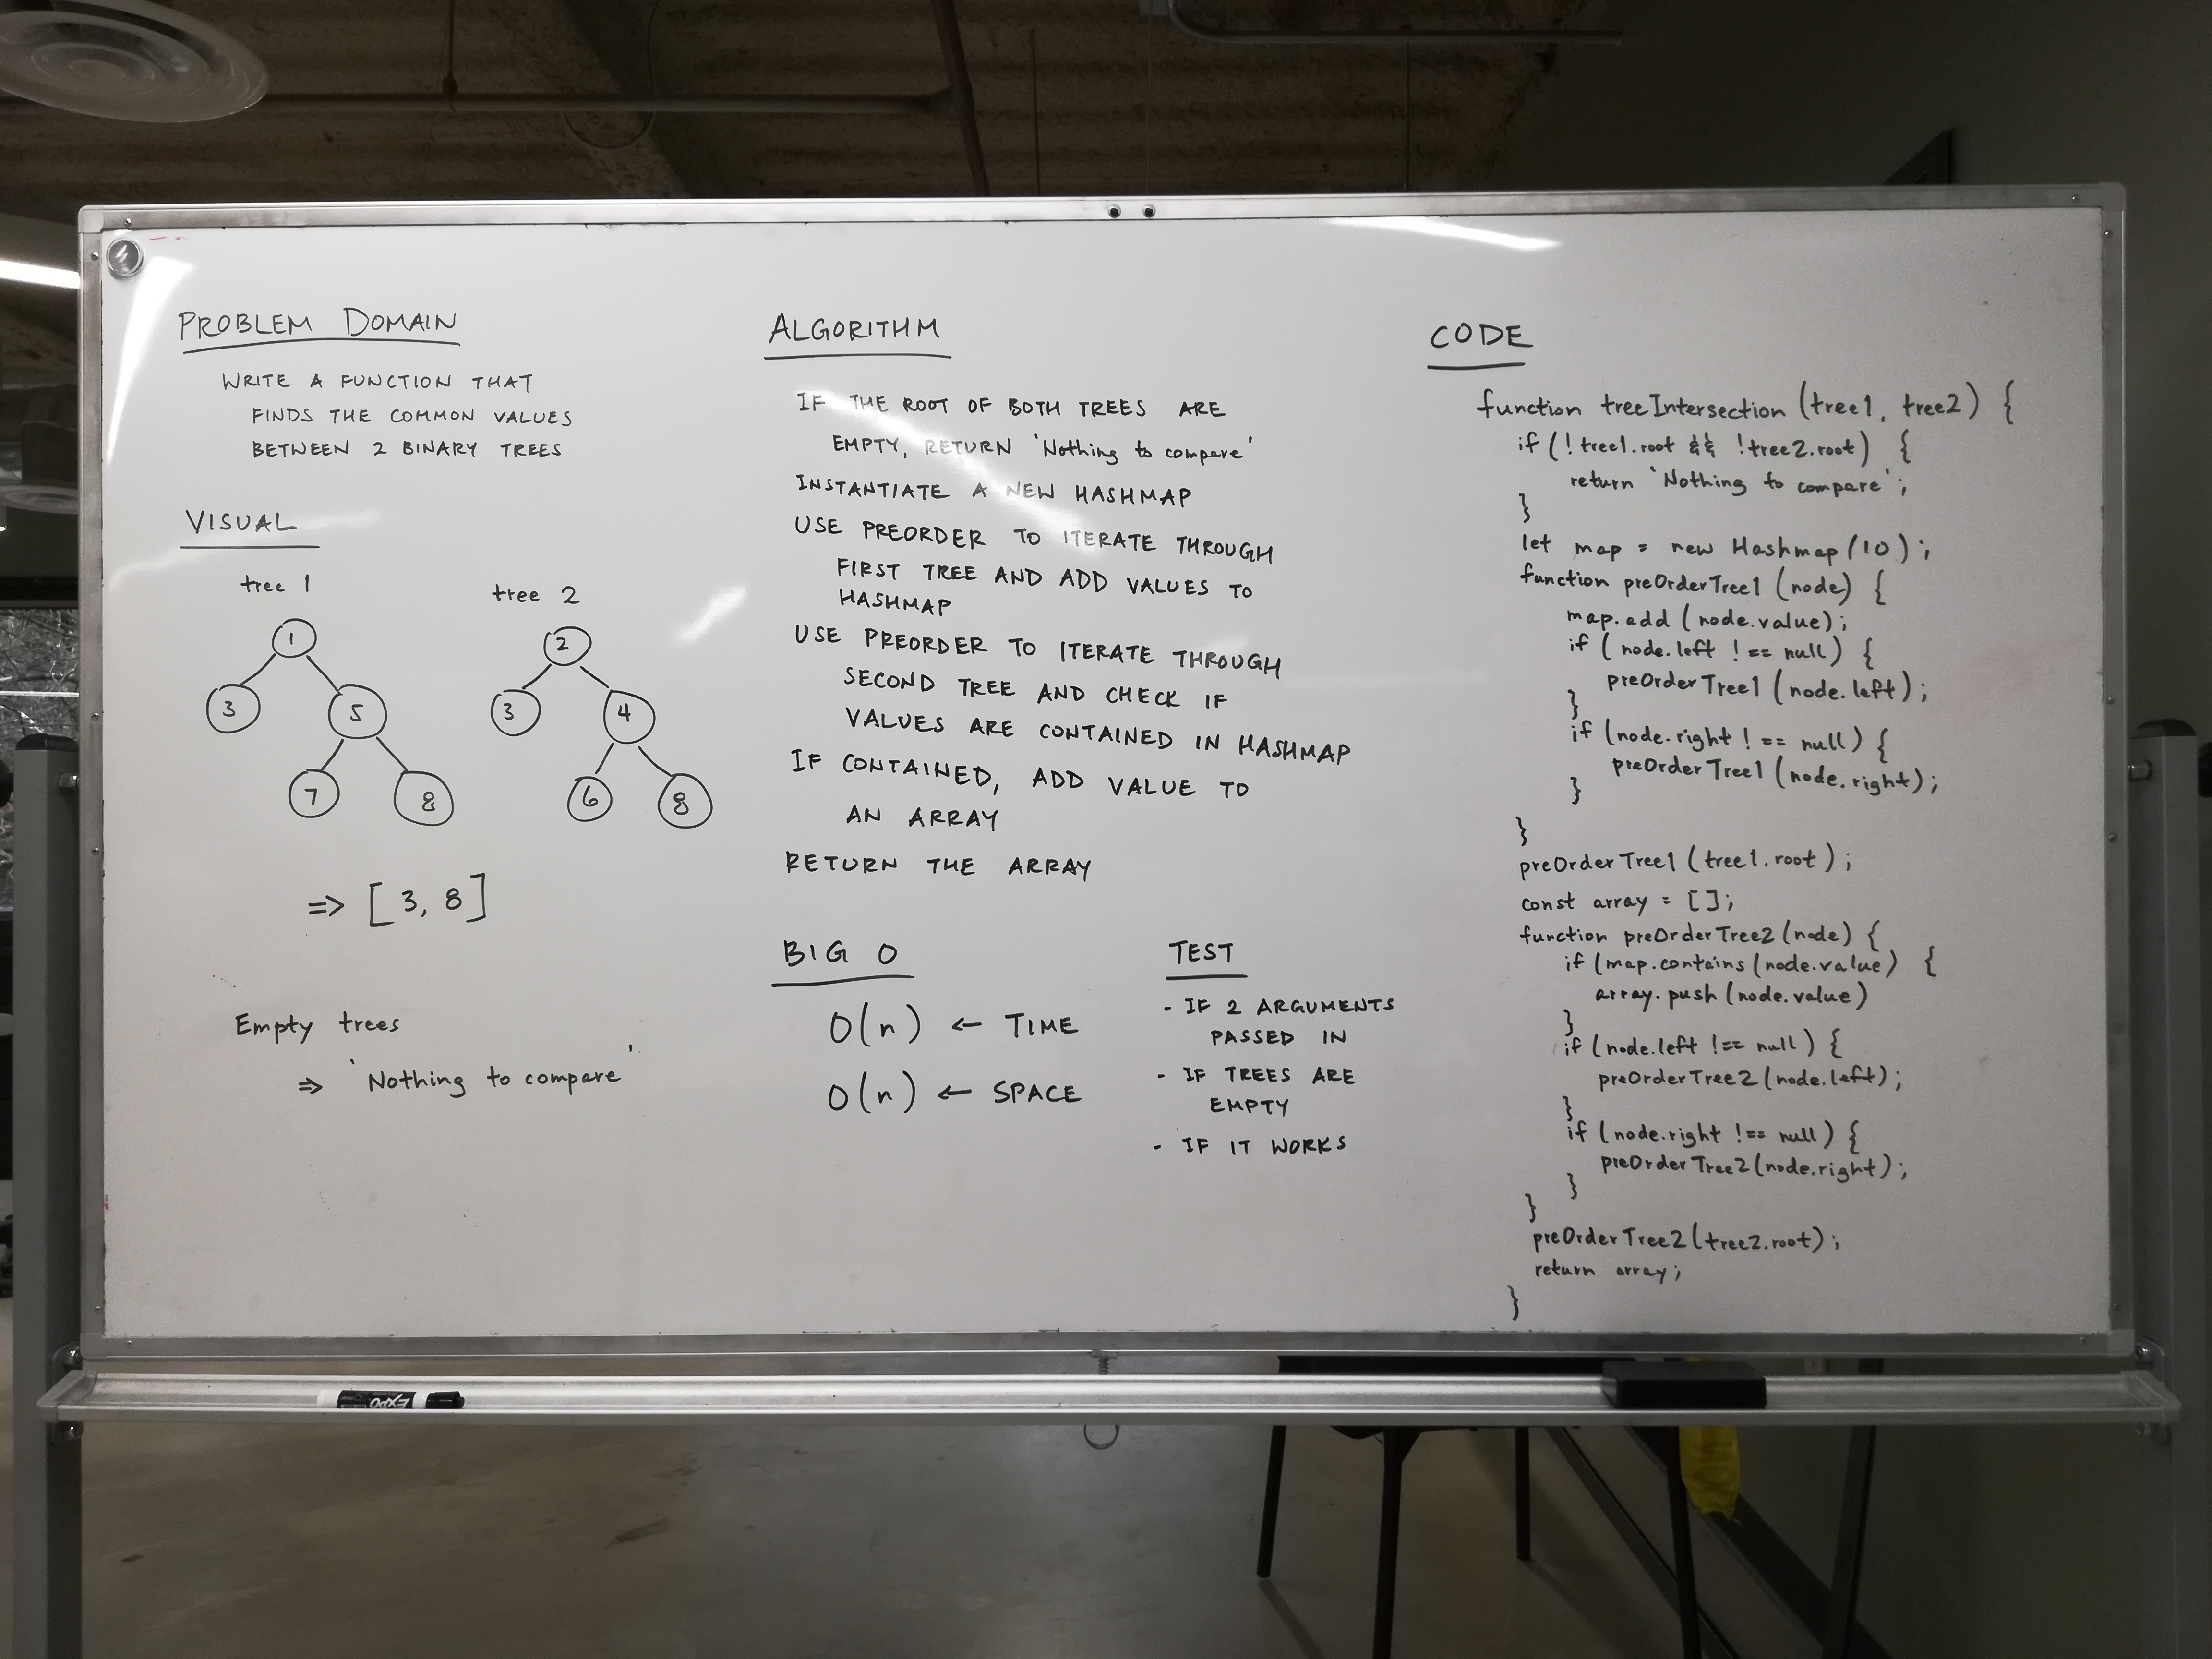 PROBLEM DOMAIN
WRITE A FUNCTION THAT
FINDS THE COMMON VALUES
BETWEEN 2 BINARY TREES
VISUAL
tree 1
1
3 5
7 8
tree 2
2
3 4
6 8
=> [3, 8]
Empty trees
=> 'Nothing to compare'
ALGORITHM
IF THE ROOT OF BOTH TREES ARE
EMPTY, RETURN 'Nothing to compare'
INSTANTIATE A NEW HASHMAP
USE PREORDER TO ITERATE THROUGH
FIRST TREE AND ADD VALUES TO
HASHMAP
USE PREORDER TO ITERATE THROUGH
SECOND TREE AND CHECK IF
VALUES ARE CONTAINED IN HASHMAP
IF CONTAINED, ADD VALUE TO
AN ARRAY
RETURN THE ARRAY
BIG O
O(n) ← TIME
O(n) ← SPACE
TEST
- IF 2 ARGUMENTS
PASSED IN
- IF TREES ARE
EMPTY
- IF IT WORKS
CODE
function treeIntersection (tree1, tree2) {
if (!tree1.root && !tree2.root) {
return 'Nothing to compare';
}
let map = new Hashmap(10);
function preOrderTree1 (node) {
map.add (node.value);
if (node.left !== null) {
preOrderTree1 (node.left);
}
if (node.right !== null) {
preOrderTree1 (node.right);
}
}
preOrderTree1 (tree1.root);
const array = [];
function preOrderTree2 (node) {
if (map.contains (node.value) {
array.push (node.value)
}
if (node.left !== null) {
preOrderTree2 (node.left);
}
if (node.right !== null) {
preOrderTree2 (node.right);
}
}
preOrderTree2 (tree2.root);
return array;
}
EXPO